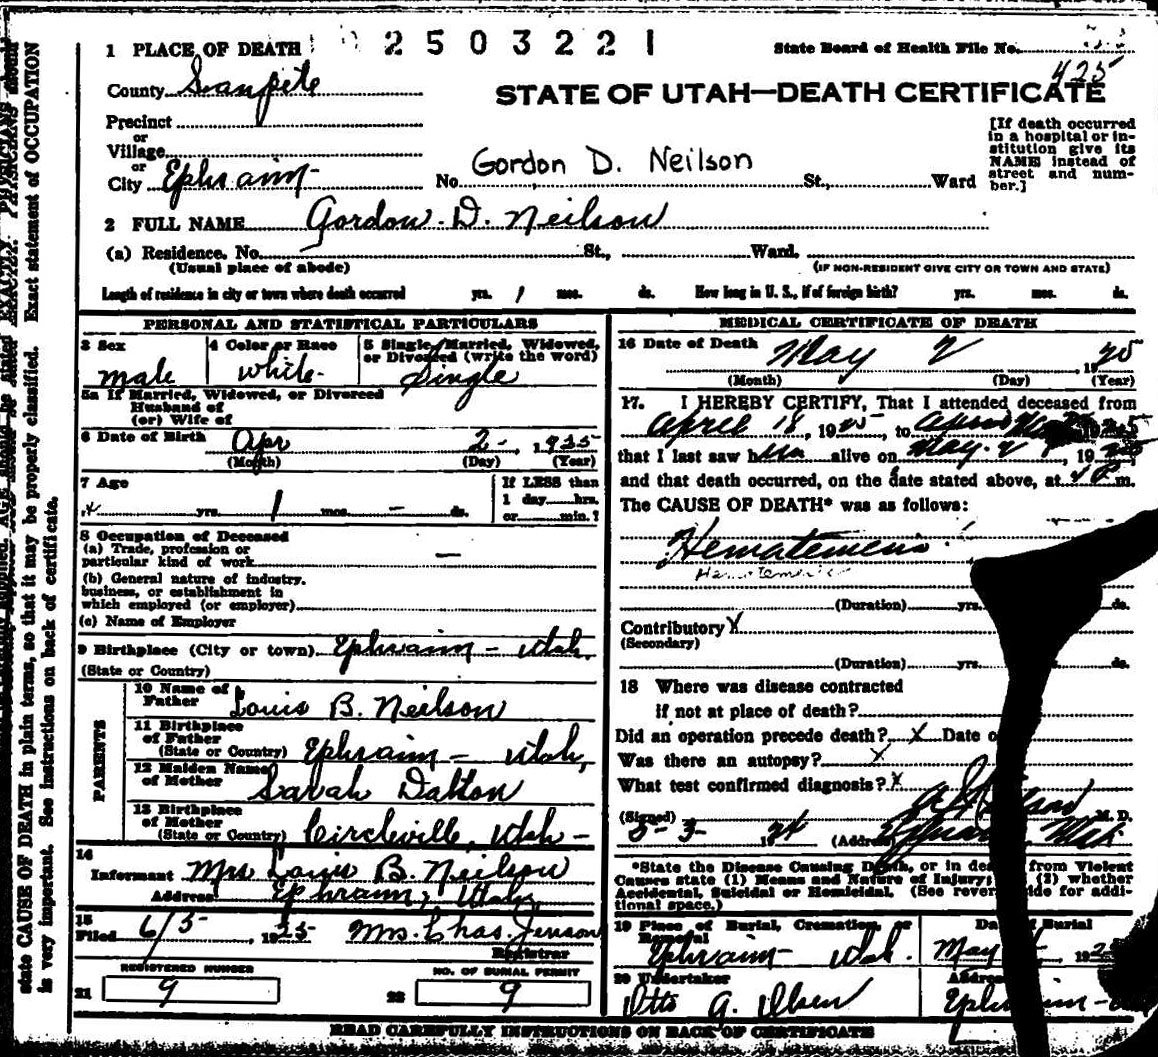 1 PLACE OF DEATH 2503221 State Board of Health File No.
425
County Sanpete
STATE OF UTAH—DEATH CERTIFICATE
Precinct
or
Village
or
City Ephraim
No. Gordon D. Neilson St., Ward
[If death occurred
in a hospital or in-
stitution give its
NAME instead of
street and num-
ber.]
2 FULL NAME Gordon D. Neilson
(a) Residence. No. St., Ward.
(Usual place of abode) (IF NON-RESIDENT GIVE CITY OR TOWN AND STATE)
Length of residence in city or town where death occurred yrs. 1 mos. ds. How long in U. S., if of foreign birth? yrs. mos. ds.
PERSONAL AND STATISTICAL PARTICULARS
3 Sex
male
4 Color or Race
white
5 Single, Married, Widowed,
or Divorced (write the word)
Single
5a If Married, Widowed, or Divorced
Husband of
(or) Wife of
6 Date of Birth Apr 2- 1925
(Month) (Day) (Year)
7 Age
yrs. 1 mos. - ds.
If LESS than
1 day hrs.
or min.?
8 Occupation of Deceased
(a) Trade, profession or
particular kind of work —
(b) General nature of industry,
business, or establishment in
which employed (or employer)
(c) Name of Employer
9 Birthplace (City or town) Ephraim - Utah.
(State or Country)
PARENTS
10 Name of
Father Louis B. Neilson
11 Birthplace
of Father
(State or Country) Ephraim - Utah,
12 Maiden Name
of Mother Sarah Dalton
13 Birthplace
of Mother
(State or Country) Circleville, Utah -
14
Informant Mrs Louis B. Neilson
Address Ephraim, Utah,
15
Filed 6/5, 1925 Mrs. Chas. Jenson
Registrar
REGISTERED NUMBER
21 9
NO. OF BURIAL PERMIT
22 9
MEDICAL CERTIFICATE OF DEATH
16 Date of Death May 2 1925
(Month) (Day) (Year)
17. I HEREBY CERTIFY, That I attended deceased from
April 18, 1925, to
that I last saw him alive on May 2, 19
and that death occurred, on the date stated above, at m.
The CAUSE OF DEATH* was as follows:
Hematemesis
(Duration) yrs. ds.
Contributory X
(Secondary)
(Duration) yrs. ds.
18 Where was disease contracted
if not at place of death?
Did an operation precede death? X Date o
Was there an autopsy? X
What test confirmed diagnosis? X
(Signed) M. D.
5-3- 1924 (Address)
*State the Disease Causing Death, or in death from Violent
Causes state (1) Means and Nature of Injury; (2) whether
Accidental, Suicidal or Homicidal. (See reverse side for addi-
tional space.)
19 Place of Burial, Cremation, or
Removal
Ephraim Utah.
Date of Burial
May 192
20 Undertaker
Otto A. Olsen
Address
Ephraim -
READ CAREFULLY INSTRUCTIONS ON BACK OF CERTIFICATE
Exact statement of OCCUPATION
state CAUSE OF DEATH in plain terms, so that it may be properly classified.
is very important. See instructions on back of certificate.